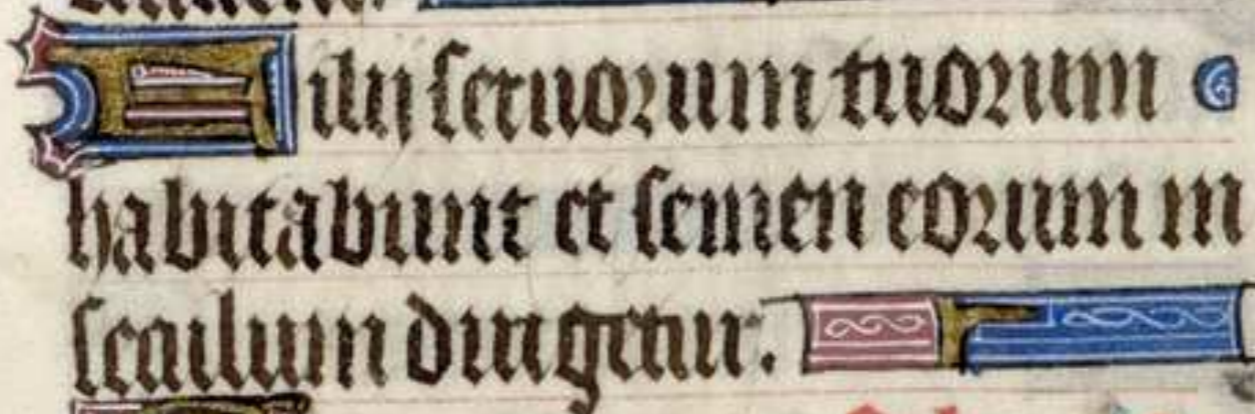 Filij seruorum tuorum
habitabunt et semen eorum in
seculum dirigetur.